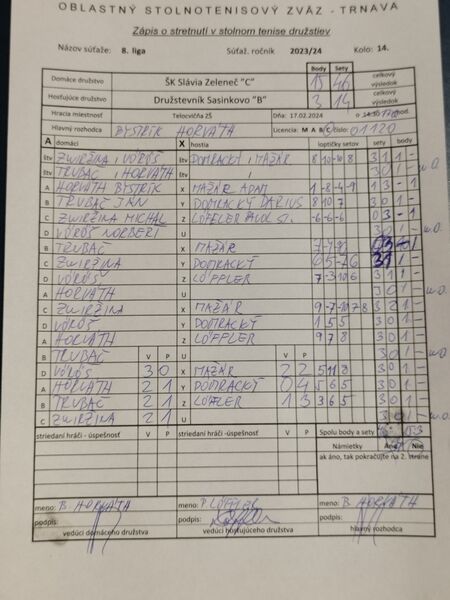 OBLASTNÝ STOLNOTENISOVÝ ZVÄZ - TRNAVA
Zápis o stretnutí v stolnom tenise družstiev
Názov súťaže: 8. liga Súťaž. ročník 2023/24 Kolo: 14.
Body Sety
Domáce družstvo ŠK Slávia Zeleneč "C" 15 46 celkový výsledok
Hosťujúce družstvo Družstevník Sasinkovo "B" 3 14 celkový výsledok
Hracia miestnosť Telocvičňa ZŠ Dňa: 17.02.2024
Hlavný rozhodca BYSTRÍK HORVÁTH Licencia: M A B C číslo: 01120
A domáci X hostia loptičky setov sety body
štv ZWIRŽINA, VÖRÖŠ štv DOMRACKÝ, MAŽÁR 8 10 -10 8 3 1 1 -
štv TRUBAČ, HORVÁTH štv 3 0 1 - w.o.
A HORVÁTH BYSTRÍK X MAŽÁR ADAM 1 -8 -4 -9 1 3 - 1
B TRUBAČ JÁN Y DOMRACKÝ DÁRIUS 8 10 7 3 0 1 -
C ZWIRŽINA MICHAL Z LÖFFLER PAVOL St. -6 -6 -6 0 3 - 1
D VÖRÖŠ NORBERT U 3 0 1 - w.o.
B TRUBAČ X MAŽÁR
C ZWIRŽINA Y DOMRACKÝ
D VÖRÖŠ Z LÖFFLER 7 -3 10 6 3 1 1 -
A HORVÁTH U 3 0 1 - w.o.
C ZWIRŽINA X MAŽÁR 9 -7 -10 7 8 3 2 1 -
D VÖRÖŠ Y DOMRACKÝ 1 5 5 3 0 1 -
A HORVÁTH Z LÖFFLER 9 7 8 3 0 1 -
B TRUBAČ V P U V P 3 0 1 - w.o.
D VÖRÖŠ 3 0 X MAŽÁR 2 2 5 11 8 3 0 1 -
A HORVÁTH 2 1 Y DOMRACKÝ 0 4 5 6 5 3 0 1 -
B TRUBAČ 2 1 Z LÖFFLER 1 3 3 6 5 3 0 1 -
C ZWIRŽINA 2 1 U 3 0 1 - w.o.
striedaní hráči - úspešnosť V P striedaní hráči - úspešnosť V P Spolu body a sety
Námietky Áno Nie
ak áno, tak pokračujte na 2. strane
meno: B. HORVÁTH meno: P. LÖFFLER meno: B. HORVÁTH
podpis: podpis: podpis:
vedúci domáceho družstva vedúci hosťujúceho družstva hlavný rozhodca